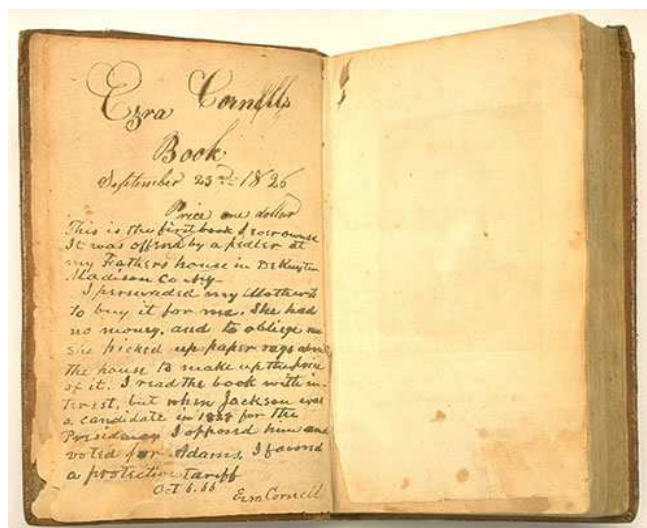 Ezra Cornells
Book
September 23rd 1826
Price one dollar
This is the first book I ever owned
It was offerd by a pedler at
my Father's house in DeRuyter
Madison Co NY
I perswaded my Mother to
to buy it for me. She had
no money, and to oblige me
she picked up paper rags about
the house to make up the price
of it. I read the book with in-
terest, but when Jackson was
a candidate in for the
Presidency I opposed him and
voted for Adams, I favored
a protective tariff
Oct 5.
Ezra Cornell